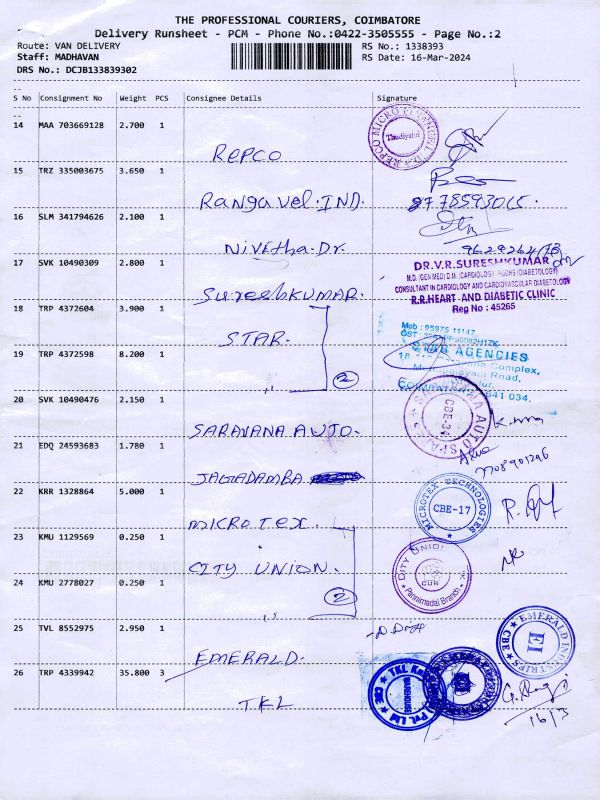 THE PROFESSIONAL COURIERS, COIMBATORE
Delivery Runsheet - PCM - Phone No.:0422-3505555 - Page No.:2
Route: VAN DELIVERY RS No.: 1338393
Staff: MADHAVAN RS Date: 16-Mar-2024
DRS No.: DCJB133839302
S No Consignment No Weight PCS Consignee Details Signature
14 MAA 703669128 2.700 1
REPCO MICRO
REPCO
15 TRZ 335003675 3.650 1
Rangavel.IND.
16 SLM 341794626 2.100 1
Nivetha.Dr.
17 SVK 10490309 2.800 1
DR.V.R.SURESHKUMAR
M.D. (GEN MED) D.M. (CARDIOLOGY)
CONSULTANT IN CARDIOLOGY AND CARDIOVASCULAR DIABETOLOGY
R.R.HEART AND DIABETIC CLINIC
Reg No : 45265
SureshKUMAR.
18 TRP 4372604 3.900 1
Mob : 95975 11147
STAR.
STAR AGENCIES
19 TRP 4372598 8.200 1
Complex,
Road,
641 034.
2
20 SVK 10490476 2.150 1
SARAVANA AUTO
SARAVANA AUTO.
21 EDQ 24593683 1.780 1
JAGADAMBA
22 KRR 1328864 5.000 1
MICROTEX TECHNOLOGIES
CBE-17
MICROTEX.
23 KMU 1129569 0.250 1
CITY UNION
CUB
Pannimadai Branch
CITY UNION.
24 KMU 2778027 0.250 1
2
25 TVL 8552975 2.950 1
EMERALD INDUSTRIES
EI
CBE
EMERALD.
26 TRP 4339942 35.800 3
TKL
WAREHOUSE
Pvt Ltd
CBE
TKL
16/3